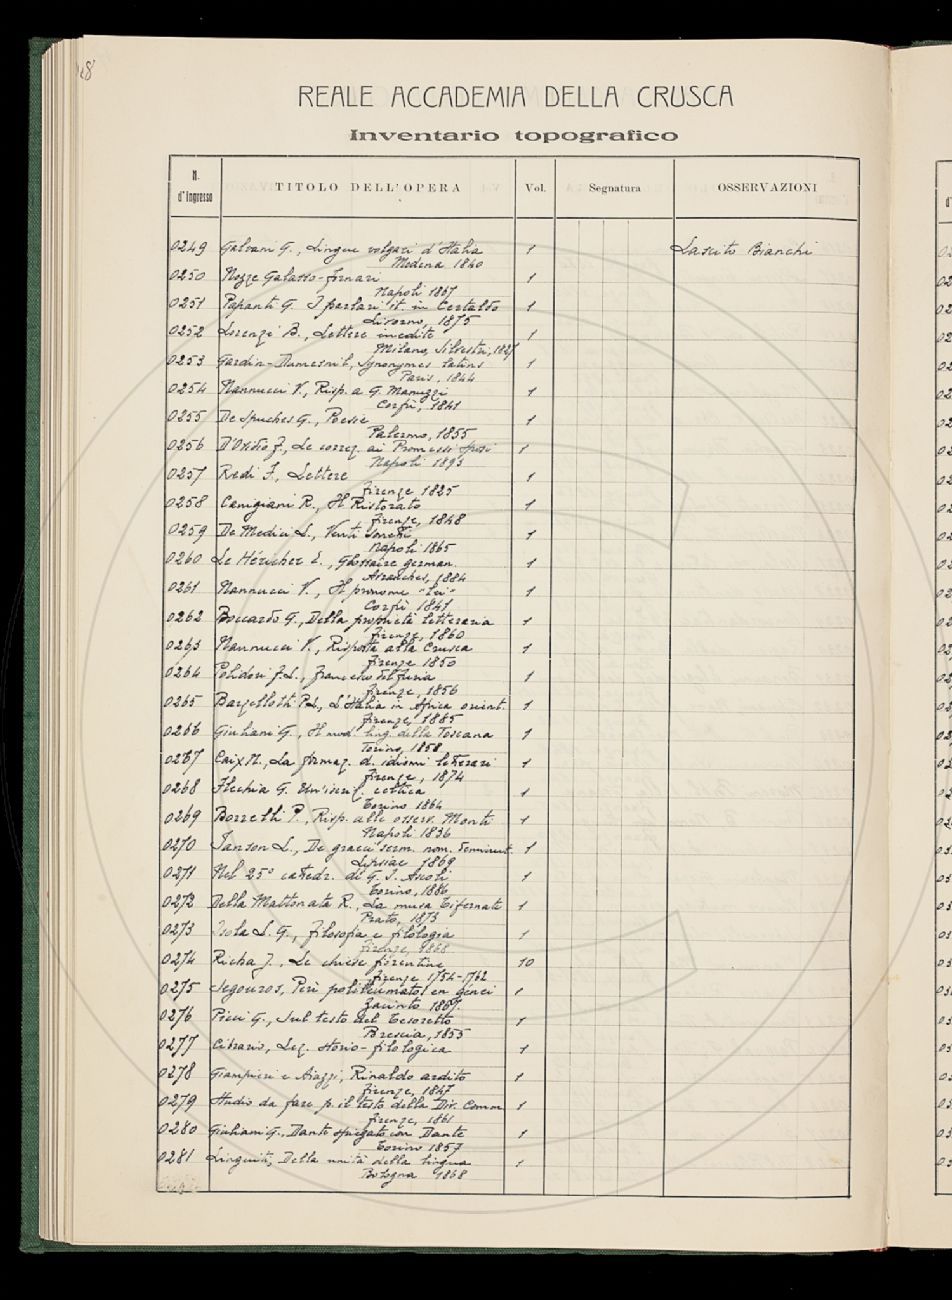 28
REALE ACCADEMIA DELLA CRUSCA
Inventario topografico
N. d'Ingresso TITOLO DELL'OPERA Vol. Segnatura OSSERVAZIONI
0249 Galvani G., Lingue volgari d'Italia 1 Lascito Bianchi
Modena 1840
0250 Nozze Galasso-Fornari 1
Napoli 1867
0251 Papanti G. I parlari it. in Certaldo 1
Livorno, 1875
0252 Lorenzi B., Lettere inedite 1
Milano, Silvestri, 182
0253 Gardin-Dumesnil, Synonymes latins 1
Paris, 1844
0254 Nannucci V., Risp. a G. Manuzzi 1
Corfù, 1841
0255 De Spuches G., Poesie 1
Palermo, 1855
0256 D'Ovidio F., Le correz. ai Promessi Sposi 1
Napoli 1893
0257 Redi F., Lettere 1
Firenze 1825
0258 Canigiani R., Il Ristorato 1
Firenze, 1848
0259 De Medici L., Venti sonetti 1
Napoli 1865
0260 Le Héricher E., Glossaire german. 1
Avranches, 1884
0261 Nannucci V., Il pronome "Lui" 1
Corfù 1841
0262 Boccardo G., Della proprietà letteraria 1
Firenze, 1860
0263 Nannucci V., Risposta alla Crusca 1
Firenze 1850
0264 Polidori F.L., Francesco Del Furia 1
Firenze, 1856
0265 Barzellotti P.L., L'Italia in Africa orient. 1
Firenze, 1885
0266 Giuliani G., Il mod. ling. della Toscana 1
Torino, 1858
0267 Caix N., La formaz. d. idiomi letterari 1
Firenze, 1874
0268 Flechia G. Un'iscriz. celtica 1
Torino 1864
0269 Borrelli P., Risp. alle osserv. Monti 1
Napoli 1836
0270 Janson L., De graeci serm. nom. 1
Lipsiae 1869
0271 Nel 25° catedr. di G. I. Ascoli 1
Torino, 1886
0272 Della Mattonata R., La musa Tifernate 1
Prato, 1873
0273 Isola I. G., Filosofia e filologia 1
Firenze, 1868
0274 Richa J., Le chiese fiorentine 10
Firenze 1754-1762
0275 Segouros, Perì 1
Zacinto 1867
0276 Picci G., Sul testo del Tesoretto 1
Brescia, 1855
0277 Cibrario, Lez. storico-filologica 1
0278 Giampieri e Aiazzi, Rinaldo ardito 1
Firenze, 1847
0279 Studio da fare p. il testo della Div. Comm 1
Firenze, 1861
0280 Giuliani G., Dante spiegato con Dante 1
Torino 1857
0281 Linguiti, Della unità della lingua 1
Bologna 1868